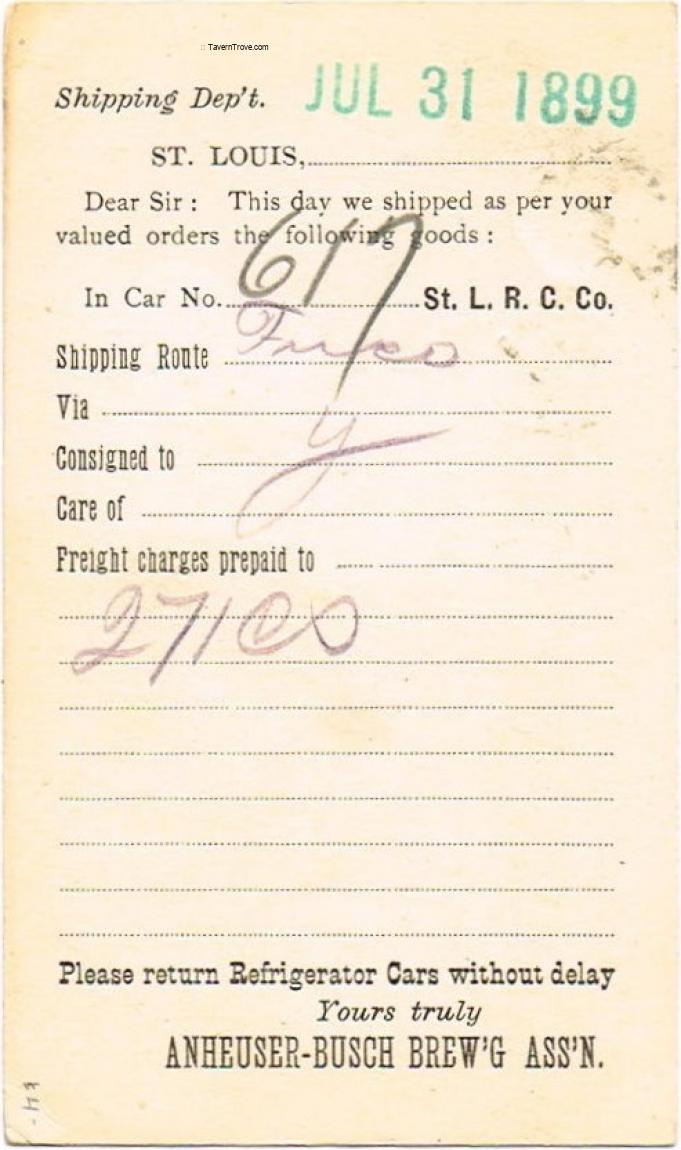 :: TavernTrove.com
Shipping Dep't. JUL 31 1899
ST. LOUIS,
Dear Sir : This day we shipped as per your
valued orders the following goods :
In Car No. 617 St. L. R. C. Co.
Shipping Route Frisco
Via
Consigned to y
Care of
Freight charges prepaid to
Please return Refrigerator Cars without delay
Yours truly
ANHEUSER-BUSCH BREW'G ASS'N.